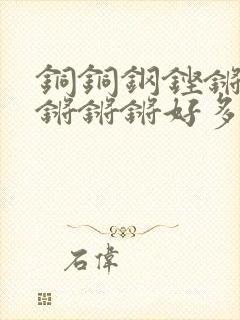 銅銅鋼鏗鏘
鏘鏘鏘好多
石偉